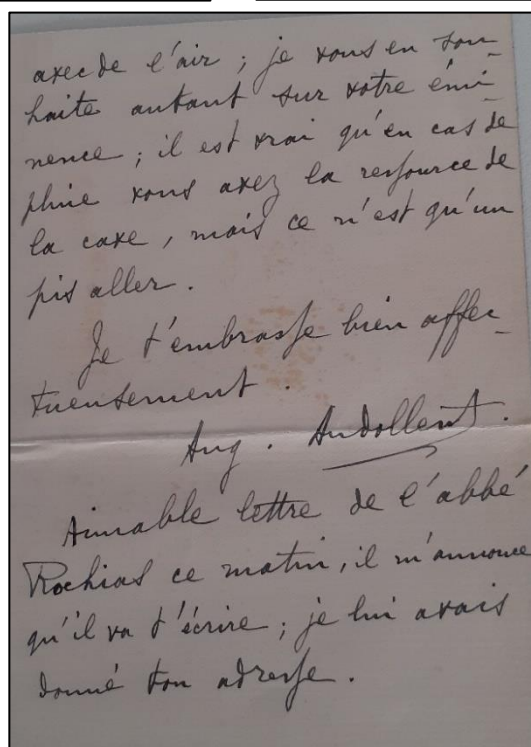 avec de l'air ; je vous en sou-
haite autant sur votre émi-
nence ; il est vrai qu'en cas de
pluie vous avez la ressource de
la cave, mais ce n'est qu'un
pis aller.
Je t'embrasse bien affec-
tueusement.
Aug. Audollent.
Aimable lettre de l'abbé
Rochias ce matin, il m'annonce
qu'il va t'écrire ; je lui avais
donné ton adresse.